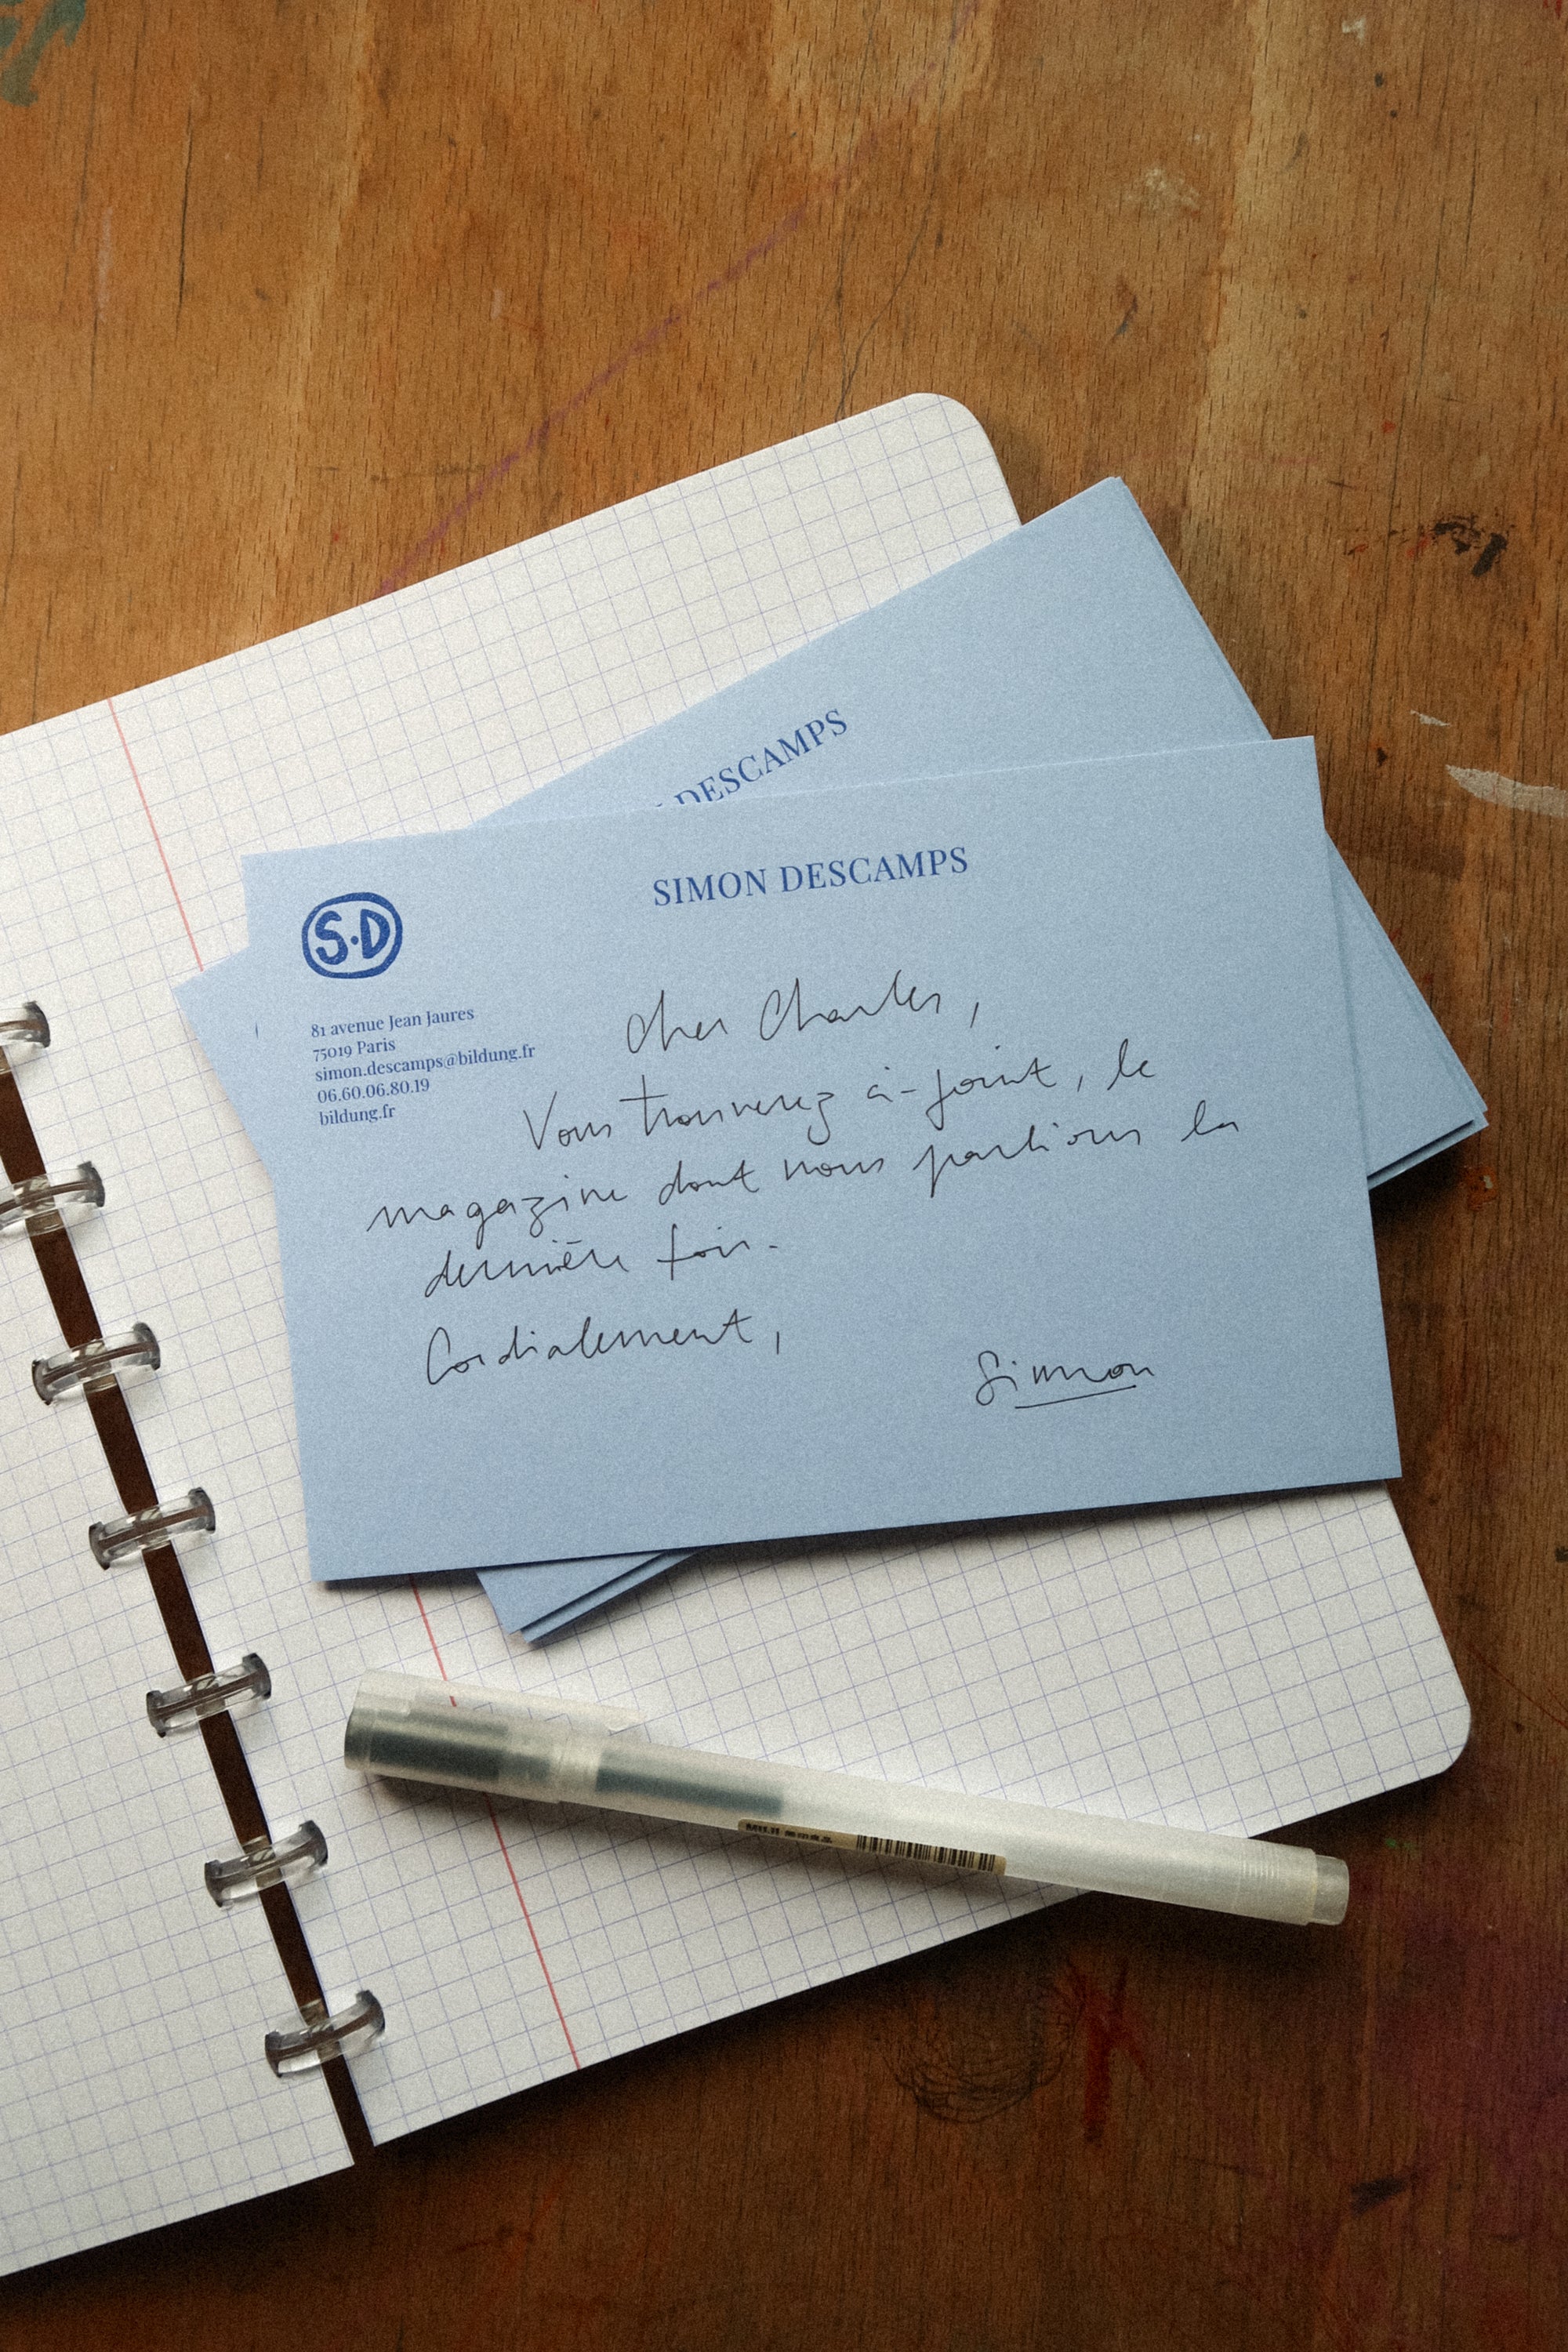 DESCAMPS
SIMON DESCAMPS
S·D
81 avenue Jean Jaures
75019 Paris
simon.descamps@bildung.fr
06.60.06.80.19
bildung.fr
Cher Charles,
Vous trouverez ci-joint, le
magazine dont nous parlions la
dernière fois.
Cordialement,
Simon
MUJI 無印良品